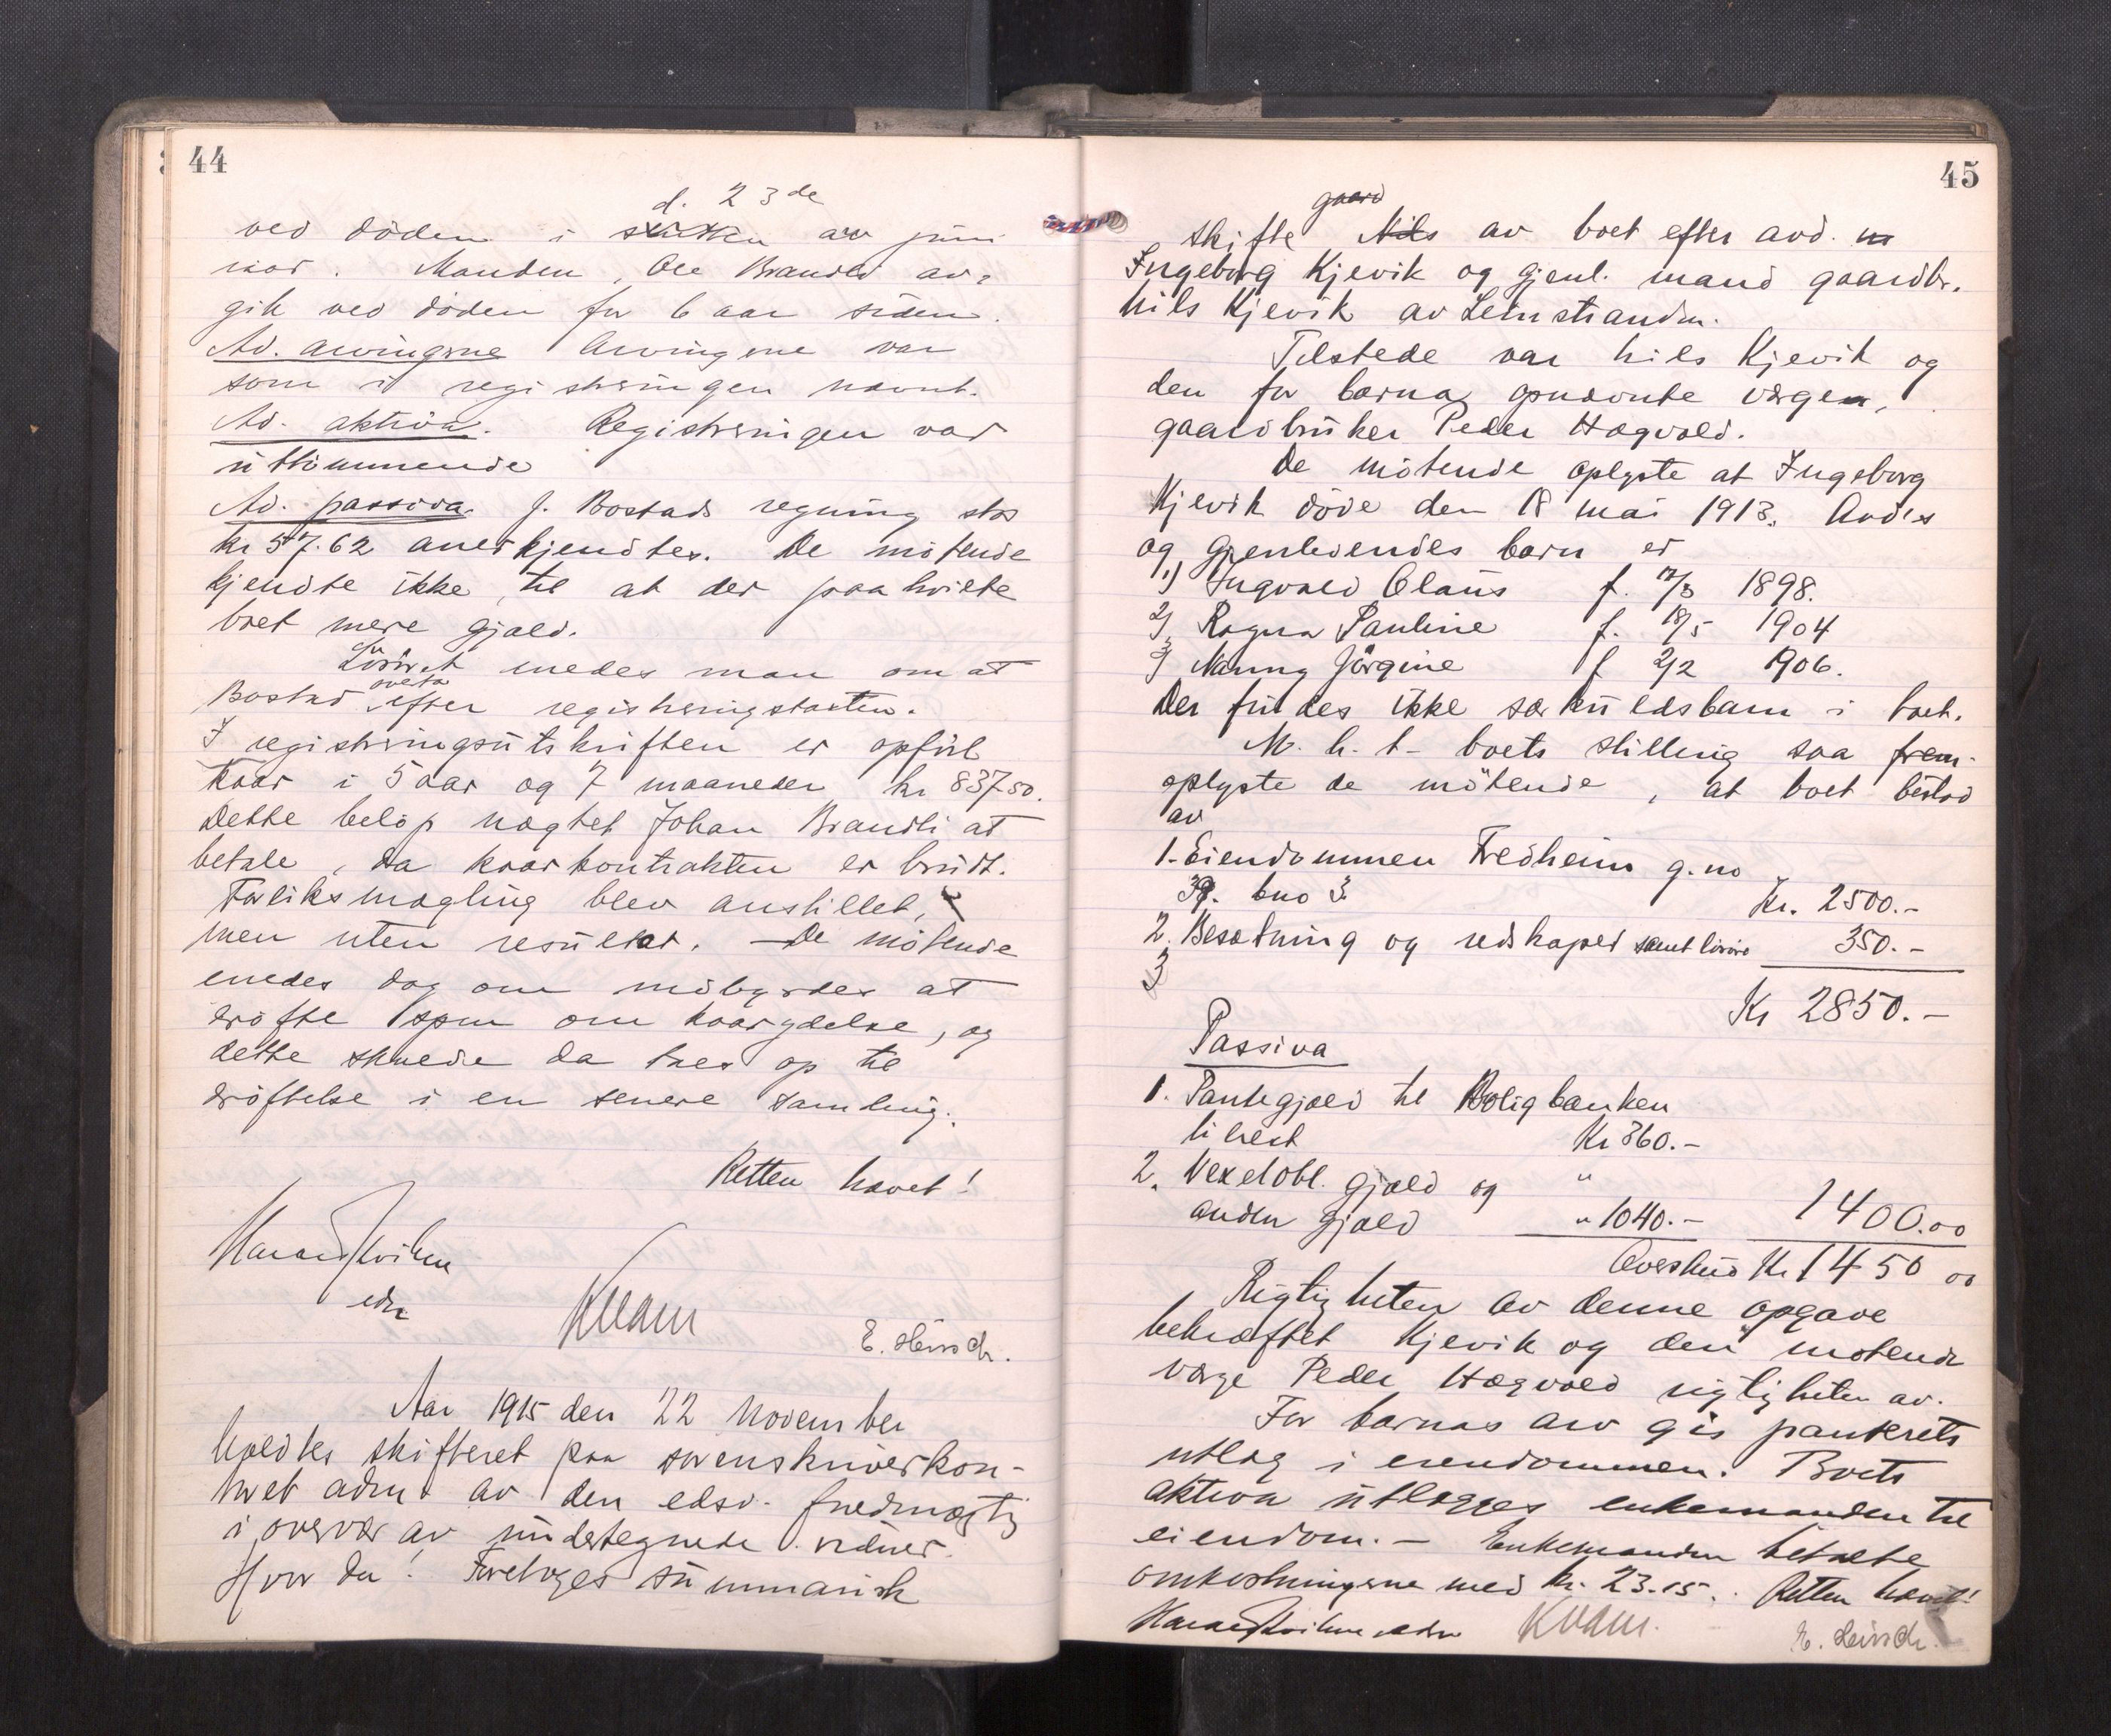 44
d. 23de
ved döden i slutten av juni
mdr. Manden, Ole Brandli av-
gik ved döden for 6 aar siden.
Ad. arvingene Arvingene var
som i registreringen nævnt.
Ad. aktiva. Registreringen var
uttömmende
Ad. passiva. J. Bostads regning stor
kr 57.62 anerkjendtes. De mötende
kjendte ikke til at der paahvilte
boet mere gjæld.
Lösöret enedes man om at
Bostad overta efter registreringstaksten.
I registreringsutskriften er opfört
kaar i 5 aar og 7 maaneder kr 837.50.
Dette belöp nægtet Johan Brandli at
betale, da kaarkontrakten er brudt.
Forliksmægling blev anstillet,
men uten resultat. – De mötende
enedes dog om at
dröfte spm om kaarydelse, og
dette skulde da tas op til
dröftelse i en senere samling.
Retten hævet!
edsv
Kvam
E. Hirsch.
Aar 1915 den 22 November
holdtes skifteret paa sorenskriverkon-
toret adm. av den edsv. fuldmægtig
i overvær av undertegnede vidner.
Hvor da! Foretoges summarisk
45
gaard
skifte Nils av boet efter avd.
Ingeborg Kjevik og gjenl. mand gaardbr.
Nils Kjevik av Leinstranden.
Tilstede var Nils Kjevik og
den for barna opnævnte værge,
gaardbruker Peder Hagvold.
De mötende oplyste at Ingeborg
Kjevik döde den 18 mai 1913. Avdes
og gjenlevendes barn er
1) Ingvald Olaus f. 1898.
2) Ragna Pauline f. 18/5 1904
3) Nanny Jörgine f 2/2 1906.
Der findes ikke særkuldsbarn i boet.
M. h. t. boets stilling saa frem-
oplyste de mötende, at boet bestod
av
1. Eiendommen Fredheim g.no
39. bno 3. Kr. 2500.-
2. Besætning og redskaper samt lösöre 350.-
3
Kr 2850.-
Passiva
1. Pantegjæld til Boligbanken
til rest Kr 360.-
2. Vexelobl. gjæld og "
anden gjæld " 1040.- 1400.00
Overskud Kr 1450 00
Rigtigheten av denne opgave
bekræftet Kjevik og den mötende
værge Peder Hagvold rigtigheten av.
For barnas arv gis panterets
utlæg i eiendommen. Boets
aktiva utlægges enkemanden til
eiendom. – Enkemanden betalte
omkostningerne med kr. 23.15. Retten hævet!
edsv Kvam. E. Hirsch.